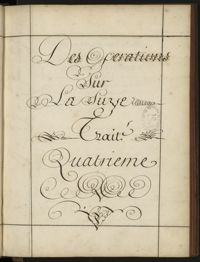 Des Operations
Sur
La Suze
Traité
Quatrieme